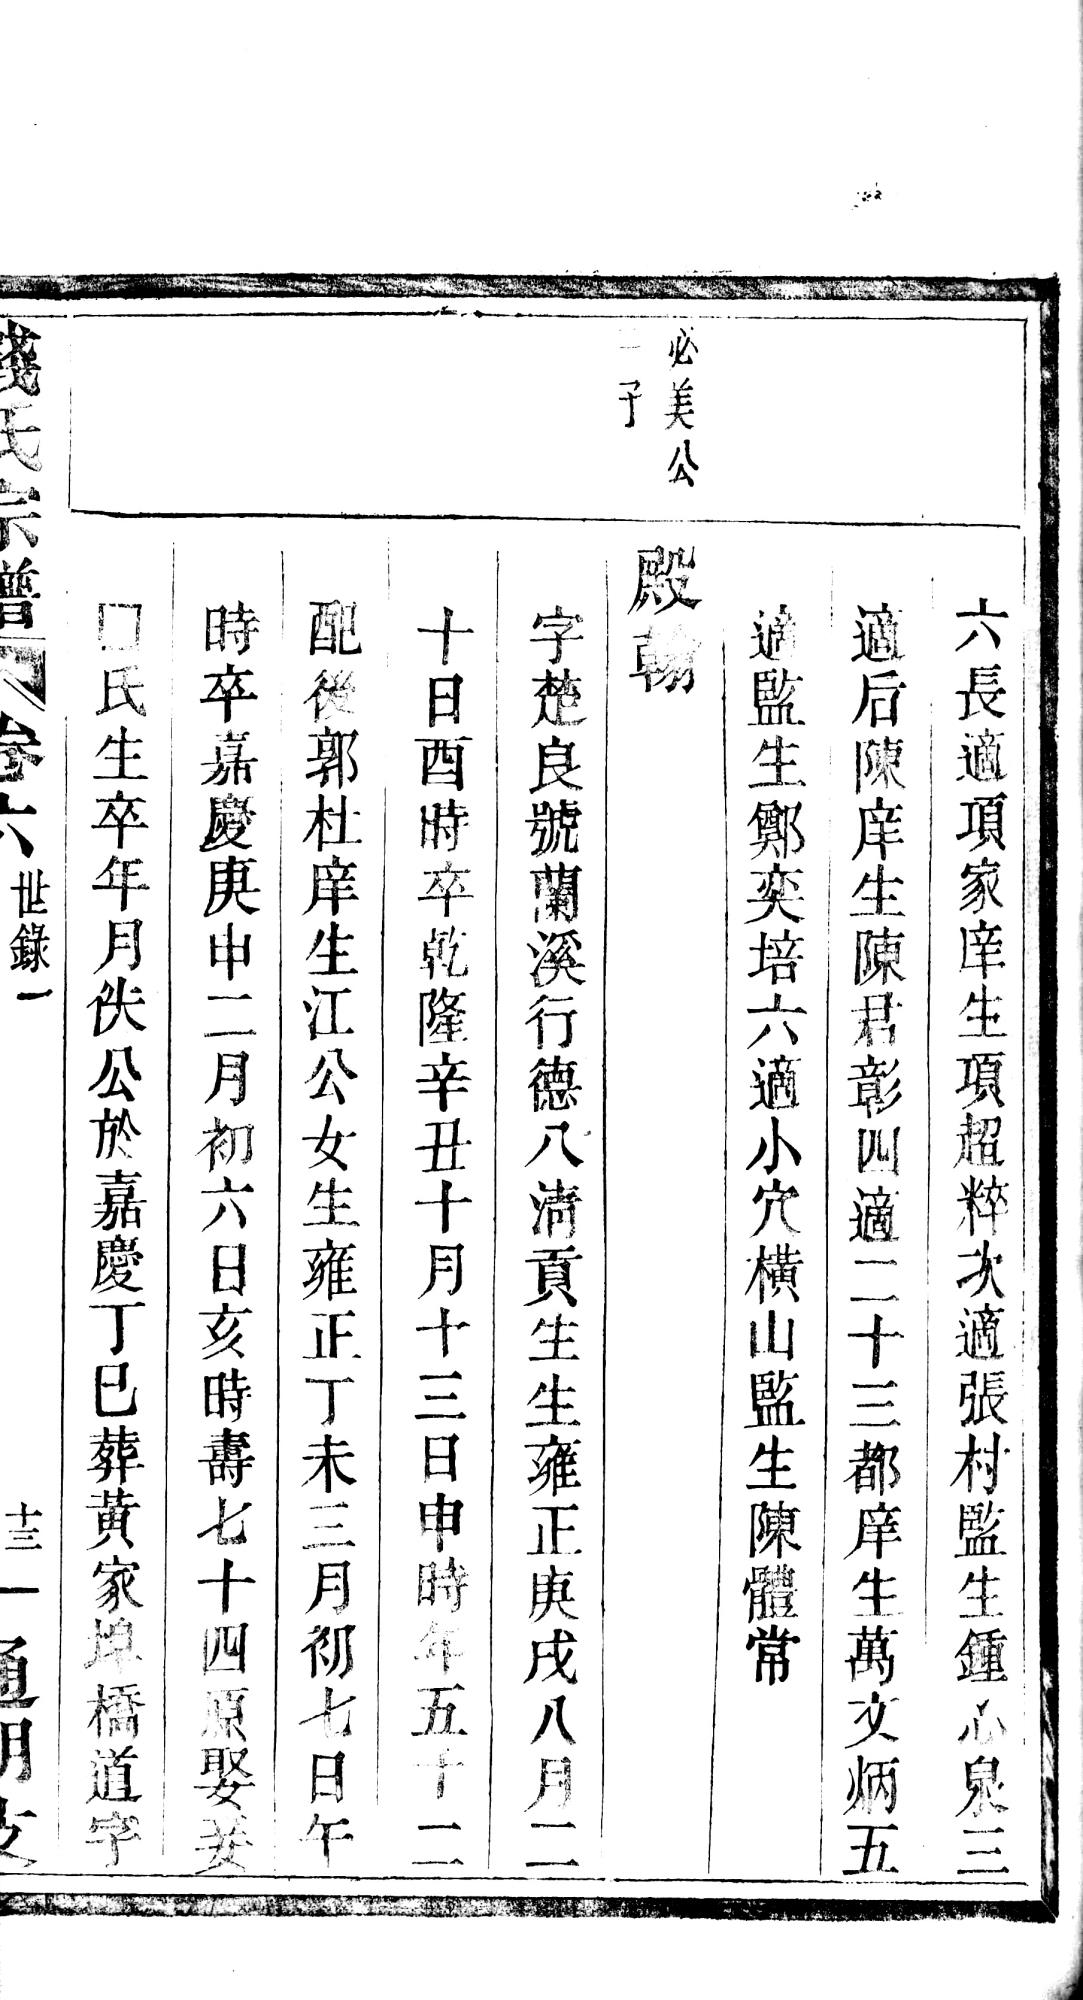 必美公
一子
六長適項家庠生項超粹次適張村監生鍾心泉三
適后陳庠生陳君彰四適二十三都庠生萬文炳五
適監生鄭奕培六適小穴橫山監生陳體常
殿翰
字楚良號蘭溪行德八淸貢生生雍正庚戌八月二
十日酉時卒乾隆辛丑十月十三日申時年五十二
配後郭杜庠生江公女生雍正丁未三月初七日午
時卒嘉慶庚申二月初六日亥時壽七十四原娶姜
囗氏生卒年月佚公於嘉慶丁巳葬黃家埠橋道字
錢氏宗譜 卷六 世錄一 十三 通明支